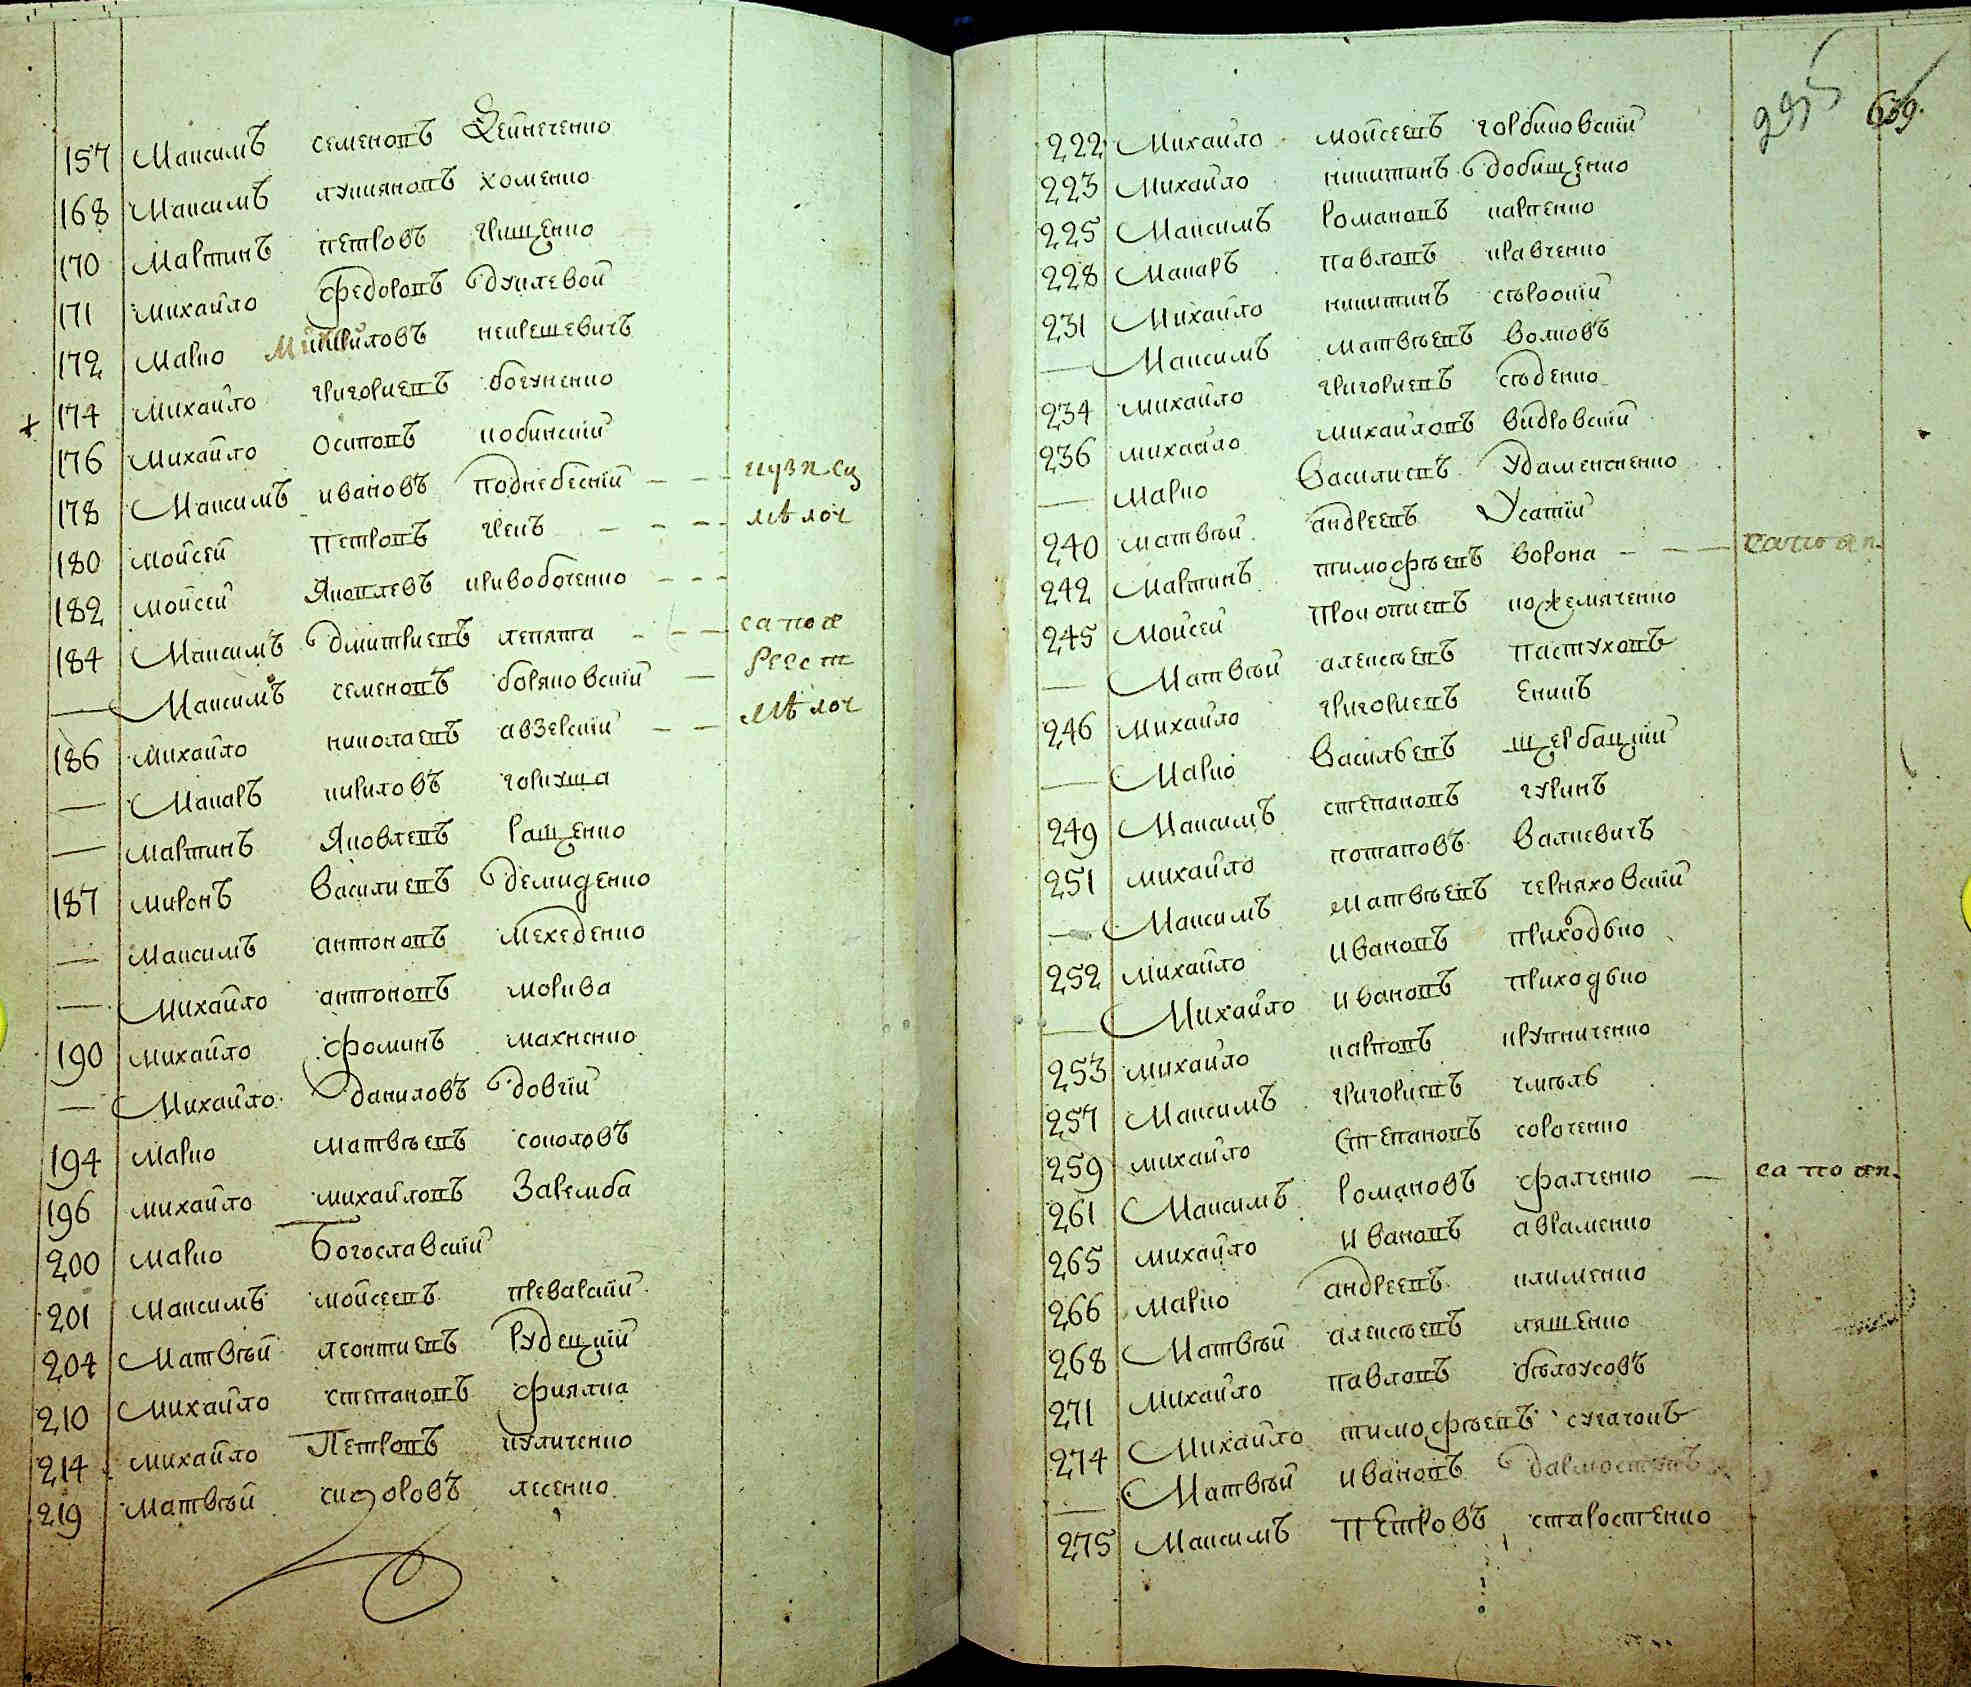 157 Максимъ семеновъ Вейнеченко
168 Максимъ лукияновъ хоменко
170 Мартинъ петровъ грищенко
171 михайло федоровъ дуплевой
172 Марко Михайловъ некрешевичъ
174 михайло григориевъ богуненко
176 михайло осиповъ кобинский
178 Максимъ ивановъ поднебесний — — кузнец
180 мойсей петровъ грекъ — — — мѣлоч
182 мойсей Яковлевъ кривобоченко — — —
184 Максимъ дмитриевъ лепята — — — сапож
— Максимъ семеновъ боряковский — реест
186 михайло николаевъ авзерский — — мѣлоч
— Макаръ кириловъ горкуша
— мартинъ Яковлевъ ращенко
187 миронъ василиевъ демиденко
— Максимъ антоновъ мехеденко
— Михайло антоновъморква
190 михайло фоминъ махненко
— Михайло даниловъ довгий
194 марко матвѣевъ соколовъ
196 михайло михайловъ Заремба
200 марко Богославский
201 Максимъ мойсеевъ преварский
204 Матвѣй леонтиевъ рудецкий
210 Михайло степановъ фиялка
214 михайло Петровъ куличенко
219 матвѣй сидоровъ лесенко
639.
222 Михайло мойсеевъ горбиковский
223 Михайло никитинъ добищенко
225 Максимъ романовъ карпенко
228 Макаръ павловъ кравченко
231 Михайло никитинъ
— Максимъ матвѣевъ волковъ
234 михайло григориевъ сѣденко
236 михайло михайловъ видровский
— марко василиевъ удаменсненко
240 матвѣй андреевъ Усатий
242 Мартинъ тимофѣевъ ворона — — — сапожн.
245 Мойсей прокопиевъ кожемяченко
— Матвѣй алексѣевъ пастуховъ
246 михайло григориевъ Еникъ
— Марко васильевъ щербацкий
249 Максимъ степановъ гуринъ
251 михайло потаповъ валкевичъ
— Максимъ матвѣевъ черняховский
252 михайло ивановъ приходько
— Михайло ивановъ приходько
253 михайло карповъ крупниченко
257 Максимъ григориевъ чмѣль
259 михайло степановъ сороченко
261 Максимъ романовъ фалченко — сапожн.
265 михайло ивановъ авраменко
266 марко андреевъ клименко
268 Матвѣй алексѣевъ ляшенко
271 михайло павловъ бѣлоусовъ
274 Михайло тимофѣевъ сугаконъ
— Матвѣй ивановъ
275 Максимъ петровъ старостенко